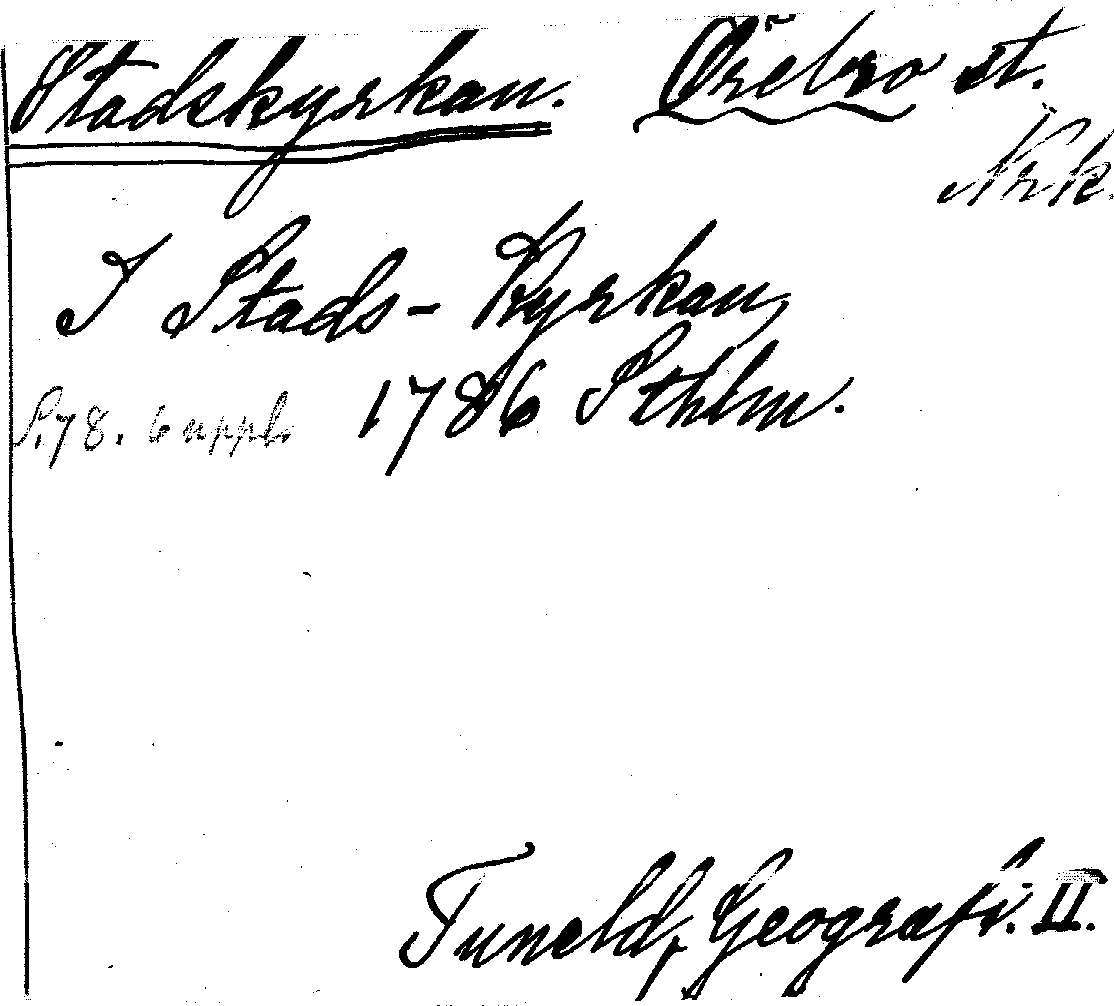 Stadskyrkan. Örebro st.
Nrk.
I Stads-Kyrkan,
S. 78. 6 uppl. 1786 Sthlm.
Tuneld, Geografi. II.